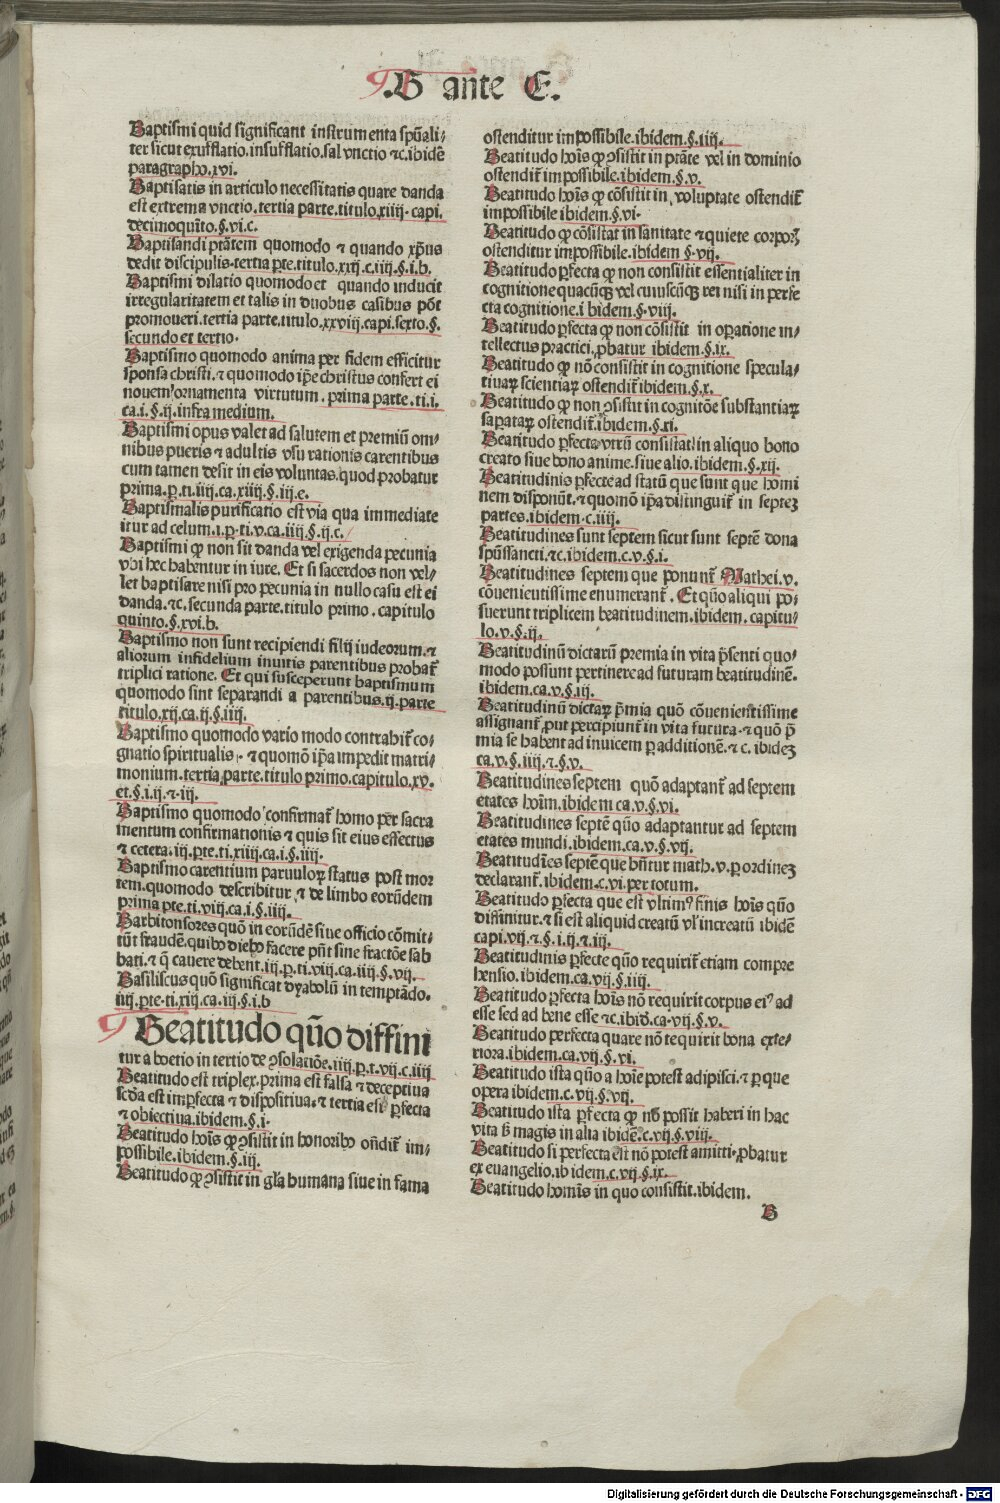 .B ante E.
Baptismi quid significant instrumenta spūali⸗
ter sicut exufflatio.insufflatio.sal vnctio ⁊c.ibidē
paragrapho.xvi.
Baptisatis in articulo necessitatis quare danda
est extrema vnctio.tertia parte.titulo.xiiij.capi.
decimoquīto.§.vi.c.
Baptisandi ptātem quomodo ⁊ quando xp̄us
dedit discipulis.tertia pte.titulo.xxij.c.iiij.§.i.b.
Baptismi dilatio quomodo et quando inducit
irregularitatem et talis in duobus casibus pōt
promoueri.tertia parte.titulo.xxviij.capi.sexto.§.
secundo et tertio.
Baptismo quomodo anima per fidem efficitur
sponsa christi.⁊ quomodo ip̄e christus confert ei
nouem ornamenta virtutum.prima parte.ti.i.
ca.i.§.ij.infra medium.
Baptismi opus valet ad salutem et premiū om⸗
nibus pueris ⁊ adultis vsu rationis carentibus
cum tamen desit in eis voluntas.quod probatur
prima.p.ti.iiij.ca.xiiij.§.iij.e.
Baptismalis purificatio est via qua immediate
itur ad celum.i.p.ti.v.ca.iiij.§.ij.c.
Baptismi ꝙ non sit danda vel exigenda pecunia
vbi hec habentur in iure. Et si sacerdos non vel⸗
let baptisare nisi pro pecunia in nullo casu est ei
danda.⁊c.secunda parte.titulo primo.capitulo
quinto.§.xvi.b.
Baptismo non sunt recipiendi filij iudeorum.⁊
aliorum infidelium inuitis parentibus probat̄
triplici ratione. Et qui susceperunt baptismum
quomodo sint separandi a parentibus.ij.parte
titulo.xij.ca.ij.§.iiij.
Baptismo quomodo vario modo contrahit̄ co⸗
gnatio spiritualis.⁊ quomō ip̄a impedit matri⸗
monium.tertia parte.titulo primo.capitulo.xv.
et.§.i.ij.⁊.iij.
Baptismo quomodo confirmat̄ homo per sacra
mentum confirmationis ⁊ quis sit eius effectus
⁊ cetera.iij.pte.ti.xiiij.ca.i.§.iiij.
Baptismo carentium paruuloꝝ status post mor
tem.quomodo describitur.⁊ de limbo eorūdem
prima pte.ti.viij.ca.i.§.iiij.
Barbitonsores quō in eorūdē siue officio cōmit⸗
tūt fraudē.quibꝰ diebꝰ facere pn̄t sine fractōe sab
bati.⁊ q̄ cauere debent.iij.p.ti.viij.ca.iiij.§.vij.
Basiliscus quō significat dyabolū in temptādo.
iiij.pte.ti.xiij.ca.iij.§.i.b
Beatitudo qūo diffini
tur a boetio in tertio de ꝯsolatiōe.iiij.p.t.vij.c.iiij
Beatitudo est triplex.prima est falsa ⁊ deceptiua
scd̄a est imꝑfecta ⁊ dispositiua.⁊ tertia est ꝑfecta
⁊ obiectiua.ibidem.§.i.
Beatitudo hoīs ꝙ ꝯsistit in honoribꝰ on̄dit̄ im⸗
possibile.ibidem.§.iij.
Beatitudo ꝙ ꝯsistit in gl̄a humana siue in fama
ostenditur impossibile.ibidem.§.iiij.
Beatitudo hoīs ꝙ ꝯsistit in ptāte vel in dominio
ostendit̄ impossibile.ibidem.§.v.
Beatitudo hoīs ꝙ cōsistit in voluptate ostendit̄
impossibile ibidem.§.vi.
Beatitudo ꝙ cōsistat in sanitate ⁊ quiete corporꝭ
ostenditur impossibile.ibidem §.vij.
Beatitudo ꝑfecta ꝙ non consistit essentialiter in
cognitione quacūqꝫ vel cuiuscūqꝫ rei nisi in perfe
cta cognitione.i bidem.§.viij.
Beatitudo ꝑfecta ꝙ non cōsistit in oꝑatione in⸗
tellectus practici.ꝓbatur ibidem.§.ix.
Beatitudo ꝙ nō consistit in cognitione specula⸗
tiuaꝝ scientiaꝝ ostendit̄ ibidem.§.x.
Beatitudo ꝙ non ꝯsistit in cognitōe substantiaꝝ
saꝑataꝝ ostendit̄.ibidem.§.xi.
Beatitudo ꝑfecta vtrū consistat in aliquo bono
creato siue bono anime.siue alio.ibidem.§.xij.
Beatitudinis ꝑfecte ad statū que sunt que homi
nem disponūt.⁊ quomō ip̄a distinguit̄ in septeꝫ
partes.ibidem.c.iiij.
Beatitudines sunt septem sicut sunt septē dona
spūssancti.⁊c.ibidem.c.v.§.i.
Beatitudines septem que ponunt̄ Mathei.v.
cōuenientissime enumerant̄. Et qūo aliqui po⸗
suerunt triplicem beatitudinem.ibidem.capitu⸗
lo.v.§.ij.
Beatitudinū dictarū premia in vita p̄senti quo⸗
modo possunt pertinere ad futuram beatitudinē.
ibidem.ca.v.§.iij.
Beatitudinū dictaꝝ p̄mia quō cōuenientissime
assignant̄ ꝓut percipiunt̄ in vita futura.⁊ quō p̄
mia se habent ad inuicem ꝑ additionē.⁊ c. ibideꝫ
ca.v.§.iiij.⁊.§.v.
Beatitudines septem quō adaptant̄ ad septem
etates hoīm.ibidem ca.v.§.vi.
Beatitudines septē qūo adaptantur ad septem
etates mundi.ibidem.ca.v.§.vij.
Beatitudīes septē que hn̄tur math.v.ꝑ ordineꝫ
declarant̄.ibidem.c.vi.per totum.
Beatitudo ꝑfecta que est vltimꝰ finis hoīs qūo
diffinitur.⁊ si est aliquid creatū vl̄ increatū ibidē
capi.vij.⁊.§.i.ij.⁊.iij.
Beatitudinis ꝑfecte qūo requirit̄ etiam compre
hensio.ibidem.ca.vij.§.iiij.
Beatitudo ꝑfecta hoīs nō requirit corpus eiꝰ ad
esse sed ad bene esse ⁊c.ibid̄.ca.vij.§.v.
Beatitudo perfecta quare nō requirit bona exte⸗
riora.ibidem.ca.vij.§.vi.
Beatitudo ista qūo a hoīe potest adipisci.⁊ per que
opera ibidem.c.vij.§.vij.
Beatitudo ista ꝑfecta ꝙ nō possit haberi in hac
vita s̄ magis in alia ibidē.c.vij.§.viij.
Beatitudo si perfecta est nō potest amitti.ꝓbatur
ex euangelio.ibidem.c.vij.§.ix.
Beatitudo hominis in quo consistit.ibidem.
B
Digitalisierung gefördert durch die Deutsche Forschungsgemeinschaft - DFG